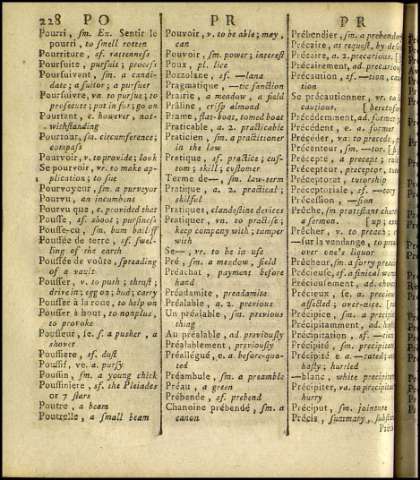 228 PO PR PR
Pourri, sm. Ex. Sentir le
pourri, to smell rotten
Pourriture, sf. rottenness
Poursuite, pursuit; process
Poursuivant, sm. a candi-
date; a suitor; a pursuer
Poursuivre, va. to pursue; to
prosecute; put in for; go on
Pourtant, c. however, not-
withstanding
Pourtour, sm. circumference;
compass
Pourvoir, v. to provide; look
Se pourvoir, vr. to make ap-
plication; to sue
Pourvoyeur, sm. a purveyor
Pourvu, an incumbent
Pourvu que, c. provided that
Pousse, sf. shoot; pursiness
Pousse-cu, sm. bum bailiff
Poussée de terre, sf. swel-
ling of the earth
Poussée de voûte, spreading
of a vault
Pousser, v. to push; thrust;
drive in; egg on; bud; carry
Pousser à la roue, to help on
Pousser à bout, to nonplus,
to provoke
Pousseur, se. f. a pusher, a
shover
Poussiere, sf. dust
Poussif, ve. a. pursy
Poussin, sm. a young chick
Poussiniere, sf. the Pleiades
or 7 stars
Poutre, a beam
Poutrelle, a small beam
Pouvoir, v. to be able; may,
can
Pouvoir, sm. power; interest
Poux, pl. lice
Pozzolane, sf. —lana
Pragmatique, —tic sanction
Prairie, a meadow, a field
Prâline, crisp almond
Prame, flat-boat, tomed boat
Praticable, a. 2. practicable
Praticien, sm. a practitioner
in the law
Pratique, sf. practice; cus-
tom; skill; customer
Terme de—, sm. law-term
Pratique, a. 2. practical;
skilful
Pratiques, clandestine devices
Pratiquer, va. to practise;
keep company with; tamper
with
Se—, vr. to be in use
Pré, sm. a meadow, field
Préachat, payment before
hand
Préadamite, preadamite
Préalable, a. 2. previous
Un préalable, sm. previous
thing
Au préalable, ad. previously
Préalablement, previously
Préallégué, e. a. before-quo-
ted
Préambule, sm. a preamble
Préau, a green
Prébende, sf. prebend
Chanoine prébendé, sm. a
canon
Prébendier, sm. a prebendar
Précaire, at request, by de
Précaire, a. 2. precarious.
Précairement, ad. precariou
Précaution, sf. —tion, cau
tion
Se précautionner, vr. to
cautious. [beretofo
Précédemment, ad. former
Précédent, e. a. former
Précéder, va. to precede,
Précenteur, sm. —tor. [p
Précepte, a precept; rule
Précepteur, preceptor, tuto
Préceptorat, tutorship
Préceptoriale, sf. —tory
Précession, —sion
Prêche, sm. protestant church
a sermon. [up
Prêcher, v. to preach;
—sur la vendange, to pra
over one's liquor
Prêcheur, sm. a sorry preach
Précieuse, sf. a finical wom
Précieusement, ad. choice
Précieux, se, a. precious
affected; over-nice. [m
Précipice, sm. a precipice
Précipitamment, ad. hast
Précipitation, sf. —tion
Précipité, sm. precipitate
Précipité e. a. —tated;
hasty; hurried
—blanc, white precipitat
Précipiter, va. to precipitat
hurry
Préciput, sm. jointure
Précis, summary, substan
Préc